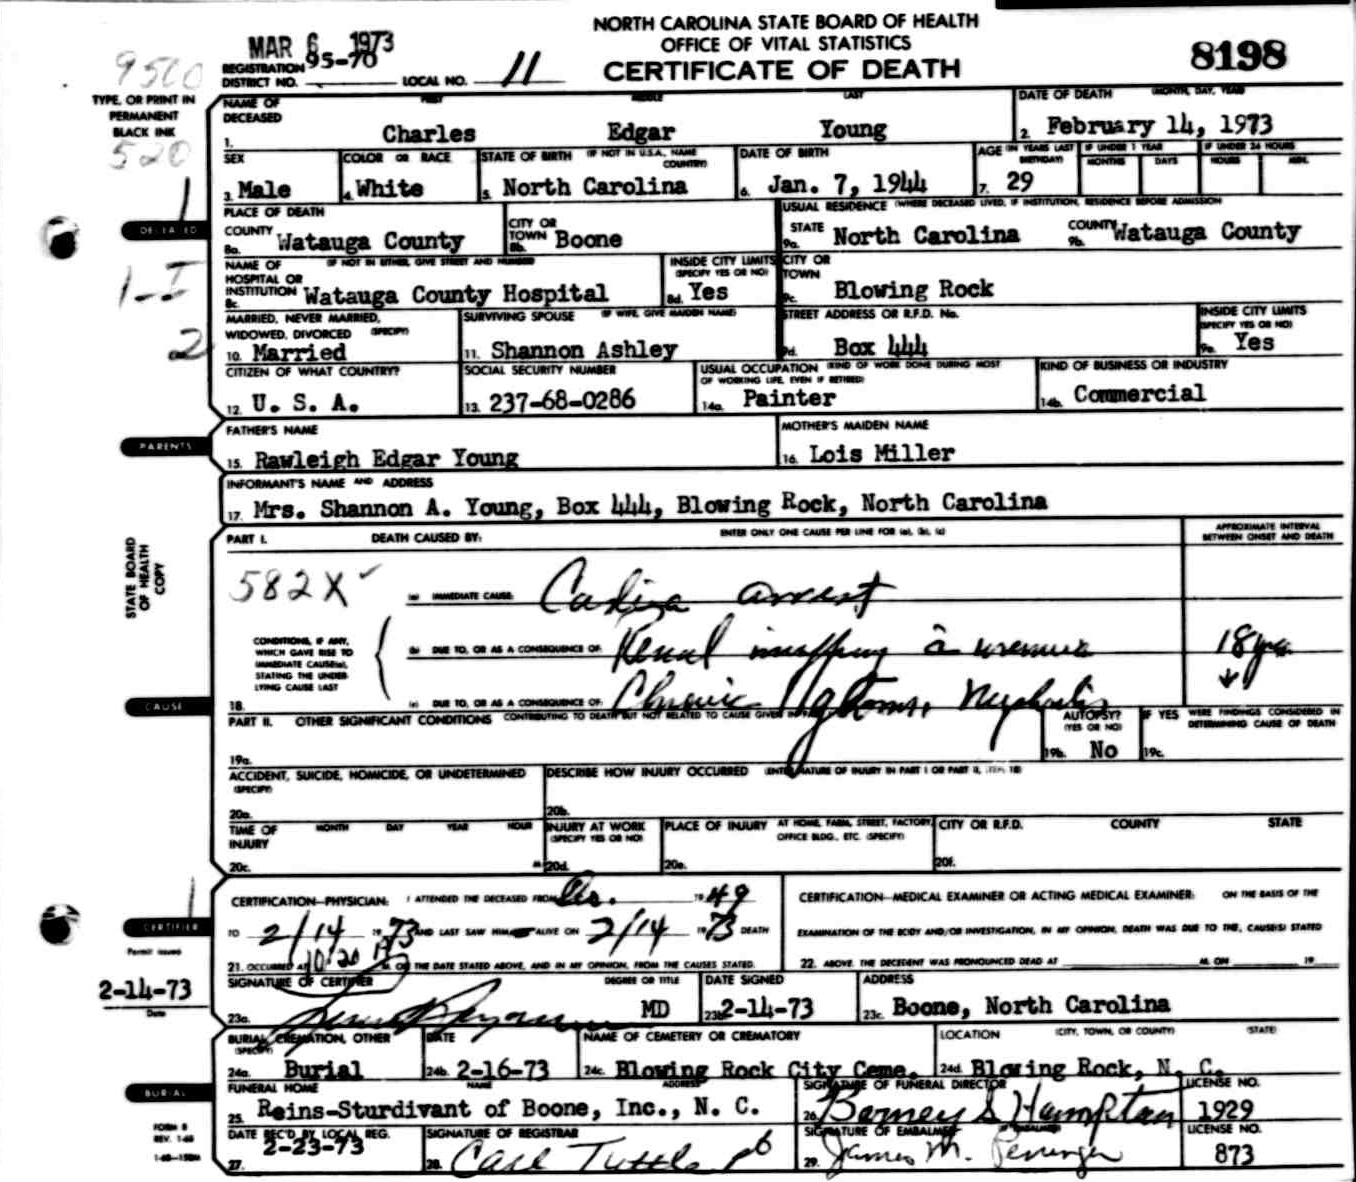 NORTH CAROLINA STATE BOARD OF HEALTH
OFFICE OF VITAL STATISTICS
CERTIFICATE OF DEATH
8198
MAR 6 1973
9500
REGISTRATION DISTRICT NO. 95-70 LOCAL NO. 11
TYPE, OR PRINT IN
PERMANENT
BLACK INK
520
1
1-I
2
NAME OF DECEASED FIRST MIDDLE LAST
1. Charles Edgar Young
DATE OF DEATH (MONTH, DAY, YEAR)
2. February 14, 1973
SEX
3. Male
COLOR OR RACE
4. White
STATE OF BIRTH (IF NOT IN U.S.A., NAME COUNTRY)
5. North Carolina
DATE OF BIRTH
6. Jan. 7, 1944
AGE (IN YEARS LAST BIRTHDAY)
7. 29
IF UNDER 1 YEAR
MONTHS DAYS
IF UNDER 24 HOURS
HOURS MIN.
DECEASED
PLACE OF DEATH
COUNTY
8a. Watauga County
CITY OR TOWN
8b. Boone
USUAL RESIDENCE (WHERE DECEASED LIVED, IF INSTITUTION, RESIDENCE BEFORE ADMISSION
STATE
9a. North Carolina
COUNTY
9b. Watauga County
NAME OF HOSPITAL OR INSTITUTION (IF NOT IN EITHER, GIVE STREET AND NUMBER)
8c. Watauga County Hospital
INSIDE CITY LIMITS (SPECIFY YES OR NO)
8d. Yes
CITY OR TOWN
9c. Blowing Rock
MARRIED, NEVER MARRIED, WIDOWED, DIVORCED (SPECIFY)
10. Married
SURVIVING SPOUSE (IF WIFE, GIVE MAIDEN NAME)
11. Shannon Ashley
STREET ADDRESS OR R.F.D. No.
9d. Box 444
INSIDE CITY LIMITS (SPECIFY YES OR NO)
9e. Yes
CITIZEN OF WHAT COUNTRY?
12. U. S. A.
SOCIAL SECURITY NUMBER
13. 237-68-0286
USUAL OCCUPATION (KIND OF WORK DONE DURING MOST OF WORKING LIFE, EVEN IF RETIRED)
14a. Painter
KIND OF BUSINESS OR INDUSTRY
14b. Commercial
PARENTS
FATHER'S NAME
15. Rawleigh Edgar Young
MOTHER'S MAIDEN NAME
16. Lois Miller
INFORMANT'S NAME AND ADDRESS
17. Mrs. Shannon A. Young, Box 444, Blowing Rock, North Carolina
STATE BOARD
OF HEALTH
COPY
PART I. DEATH CAUSED BY: ENTER ONLY ONE CAUSE PER LINE FOR (a), (b), (c)
APPROXIMATE INTERVAL BETWEEN ONSET AND DEATH
582X
(a) IMMEDIATE CAUSE: Cardiac arrest
CONDITIONS, IF ANY,
WHICH GAVE RISE TO
IMMEDIATE CAUSE(a),
STATING THE UNDER-
LYING CAUSE LAST
(b) DUE TO, OR AS A CONSEQUENCE OF: Renal insuffcny c̄ uremia 18 yrs.
CAUSE
18. (c) DUE TO, OR AS A CONSEQUENCE OF: Chronic glom. Nephritis
PART II. OTHER SIGNIFICANT CONDITIONS CONTRIBUTING TO DEATH BUT NOT RELATED TO CAUSE GIVEN IN
19a.
AUTOPSY? (YES OR NO)
19b. No
IF YES WERE FINDINGS CONSIDERED IN DETERMINING CAUSE OF DEATH
19c.
ACCIDENT, SUICIDE, HOMICIDE, OR UNDETERMINED (SPECIFY)
20a.
DESCRIBE HOW INJURY OCCURRED (ENTER NATURE OF INJURY IN PART I OR PART II, ITEM 18)
20b.
TIME OF INJURY MONTH DAY YEAR HOUR
20c. M
INJURY AT WORK (SPECIFY YES OR NO)
20d.
PLACE OF INJURY AT HOME, FARM, STREET, FACTORY, OFFICE BLDG., ETC. (SPECIFY)
20e.
CITY OR R.F.D. COUNTY STATE
20f.
1
CERTIFIER
CERTIFICATION—PHYSICIAN: I ATTENDED THE DECEASED FROM 1949
TO 2/14 1973 AND LAST SAW HIM ALIVE ON 2/14 1973 DEATH
21. OCCURRED AT 10:20 M. ON THE DATE STATED ABOVE, AND IN MY OPINION, FROM THE CAUSES STATED.
CERTIFICATION—MEDICAL EXAMINER OR ACTING MEDICAL EXAMINER: ON THE BASIS OF THE
EXAMINATION OF THE BODY AND/OR INVESTIGATION, IN MY OPINION, DEATH WAS DUE TO THE, CAUSE(S) STATED
22. ABOVE. THE DECEDENT WAS PRONOUNCED DEAD AT M. ON 19
Permit issued
2-14-73
Date
SIGNATURE OF CERTIFIER DEGREE OR TITLE
23a. MD
DATE SIGNED
23b. 2-14-73
ADDRESS
23c. Boone, North Carolina
BURIAL
BURIAL, CREMATION, OTHER (SPECIFY)
24a. Burial
DATE
24b. 2-16-73
NAME OF CEMETERY OR CREMATORY
24c. Blowing Rock City Ceme.
LOCATION (CITY, TOWN, OR COUNTY) (STATE)
24d. Blowing Rock, N. C.
FUNERAL HOME NAME ADDRESS
25. Reins-Sturdivant of Boone, Inc., N. C.
SIGNATURE OF FUNERAL DIRECTOR
26. Barney S Hampton
LICENSE NO.
1929
FORM 8
REV. 1-68
DATE REC'D BY LOCAL REG.
27. 2-23-73
SIGNATURE OF REGISTRAR
28. Carl Tuttle
SIGNATURE OF EMBALMER
29. James M.
LICENSE NO.
873